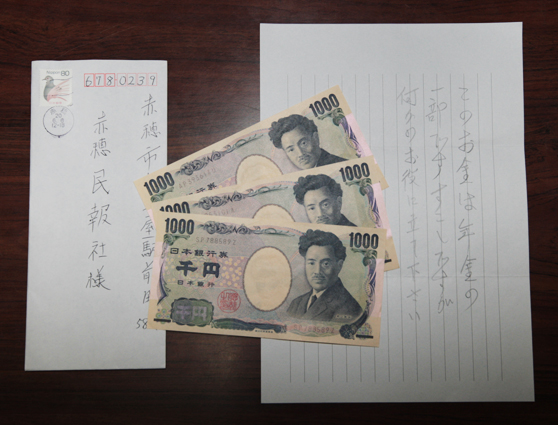 NIPPON 80
6780239
赤穂市
屋駅前町
58
赤穂民報社様
1000
1000
1000
1000
1000
日本銀行券
千円
日本銀行
千円
このお金は年金の
一部です
何かのお役に立て下さい